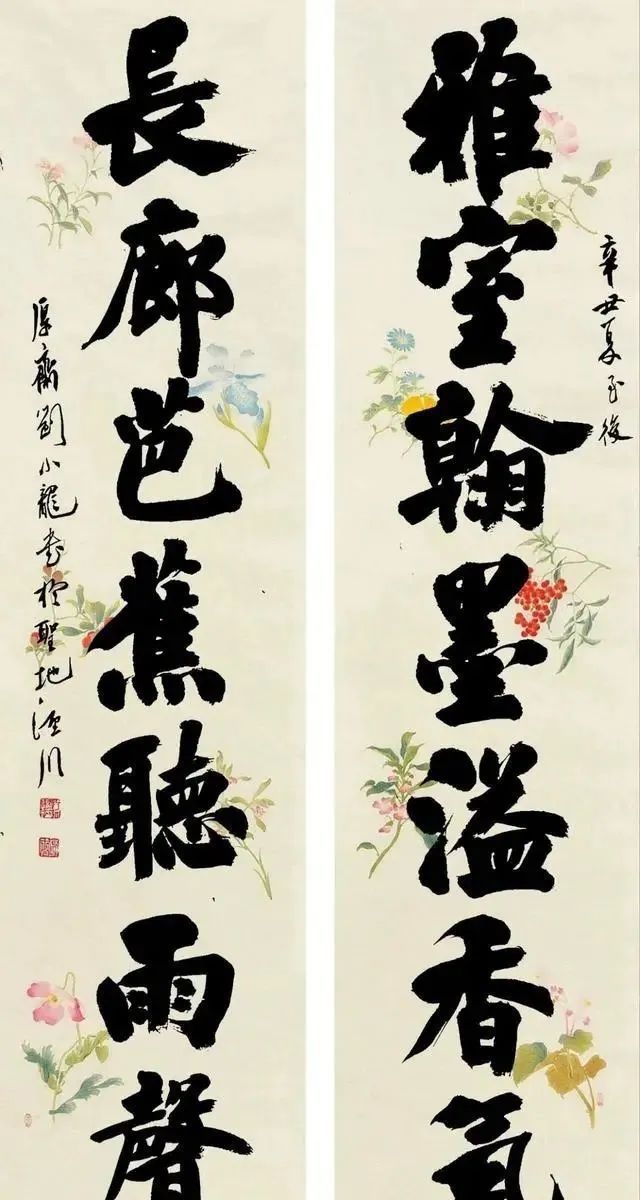 辛丑夏至後
雅室翰墨溢香氣
長廊芭蕉聽雨聲
厚齋劉小龍書於聖地涇川